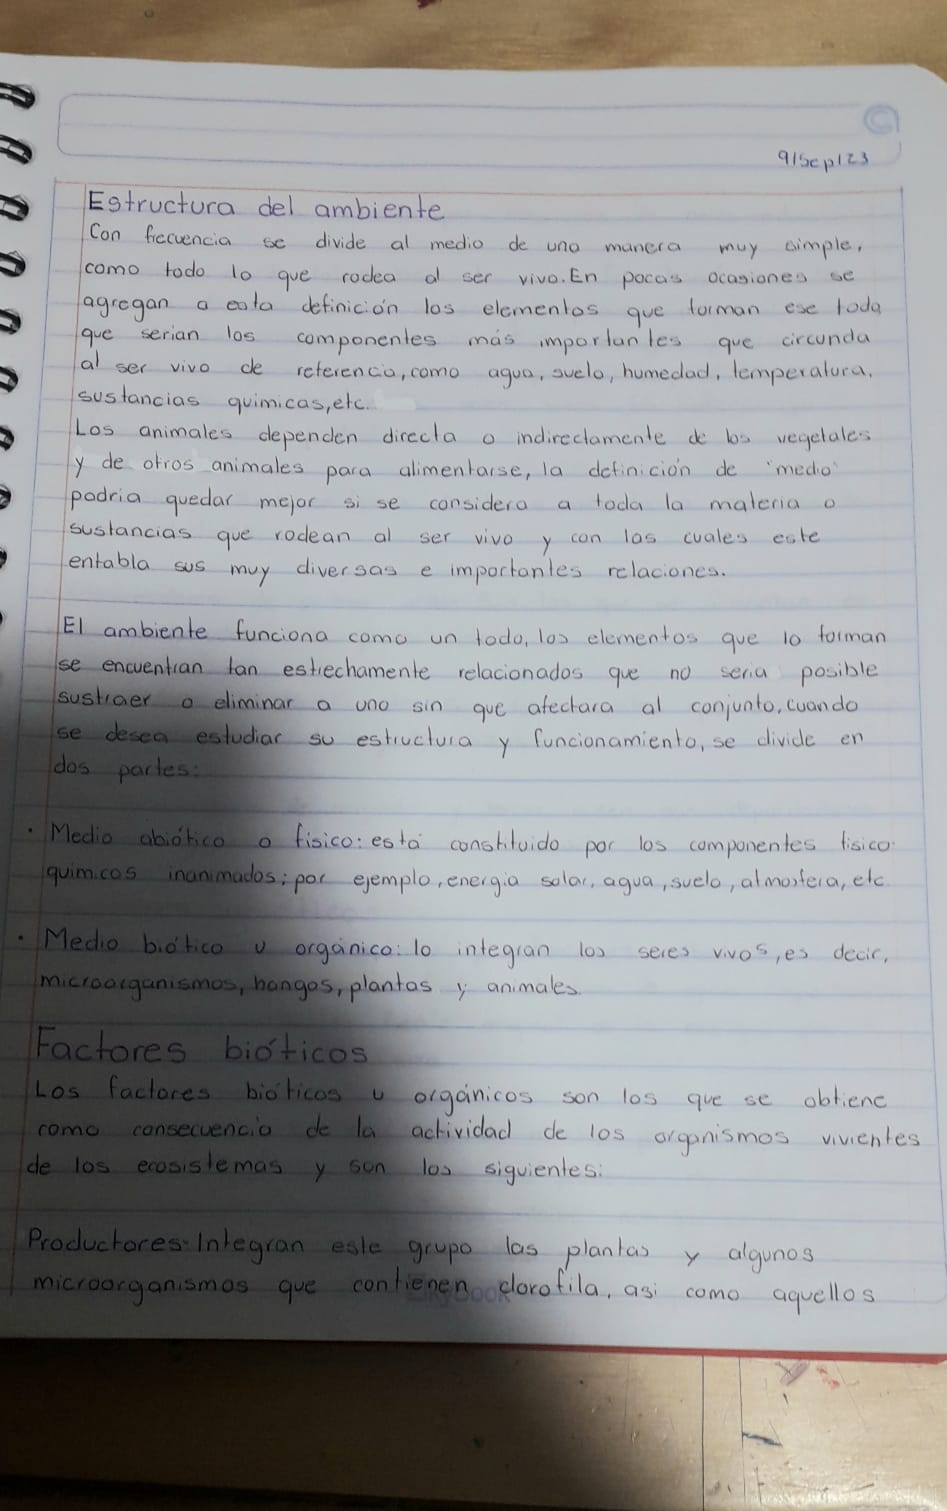 9/Sep/23
Estructura del ambiente
Con frecuencia se divide al medio de una manera muy simple,
como todo lo que rodea al ser vivo. En pocas ocasiones se
agregan a esta definición los elementos que forman ese todo
que serian los componentes más importantes que circunda
al ser vivo de referencia, como agua, suelo, humedad, temperatura,
sustancias quimicas, etc.
Los animales dependen directa o indirectamente de los vegetales
y de otros animales para alimentarse, la definición de "medio"
podria quedar mejor si se considera a toda la materia o
sustancias que rodean al ser vivo y con las cuales este
entabla sus muy diversas e importantes relaciones.
El ambiente funciona como un todo, los elementos que lo forman
se encuentran tan estrechamente relacionados que no seria posible
sustraer o eliminar a uno sin que afectara al conjunto, cuando
se desea estudiar su estructura y funcionamiento, se divide en
dos partes:
· Medio abiótico o fisico: está constituido por los componentes fisico
quimicos inanimados; por ejemplo, energia solar, agua, suelo, atmosfera, etc
· Medio biótico u orgánico: lo integran los seres vivos, es decir,
microorganismos, hongos, plantas y animales.
Factores bióticos
Los factores bióticos u orgánicos son los que se obtiene
como consecuencia de la actividad de los organismos vivientes
de los ecosistemas y son los siguientes:
Productores: Integran este grupo las plantas y algunos
microorganismos que contienen clorofila, asi como aquellos